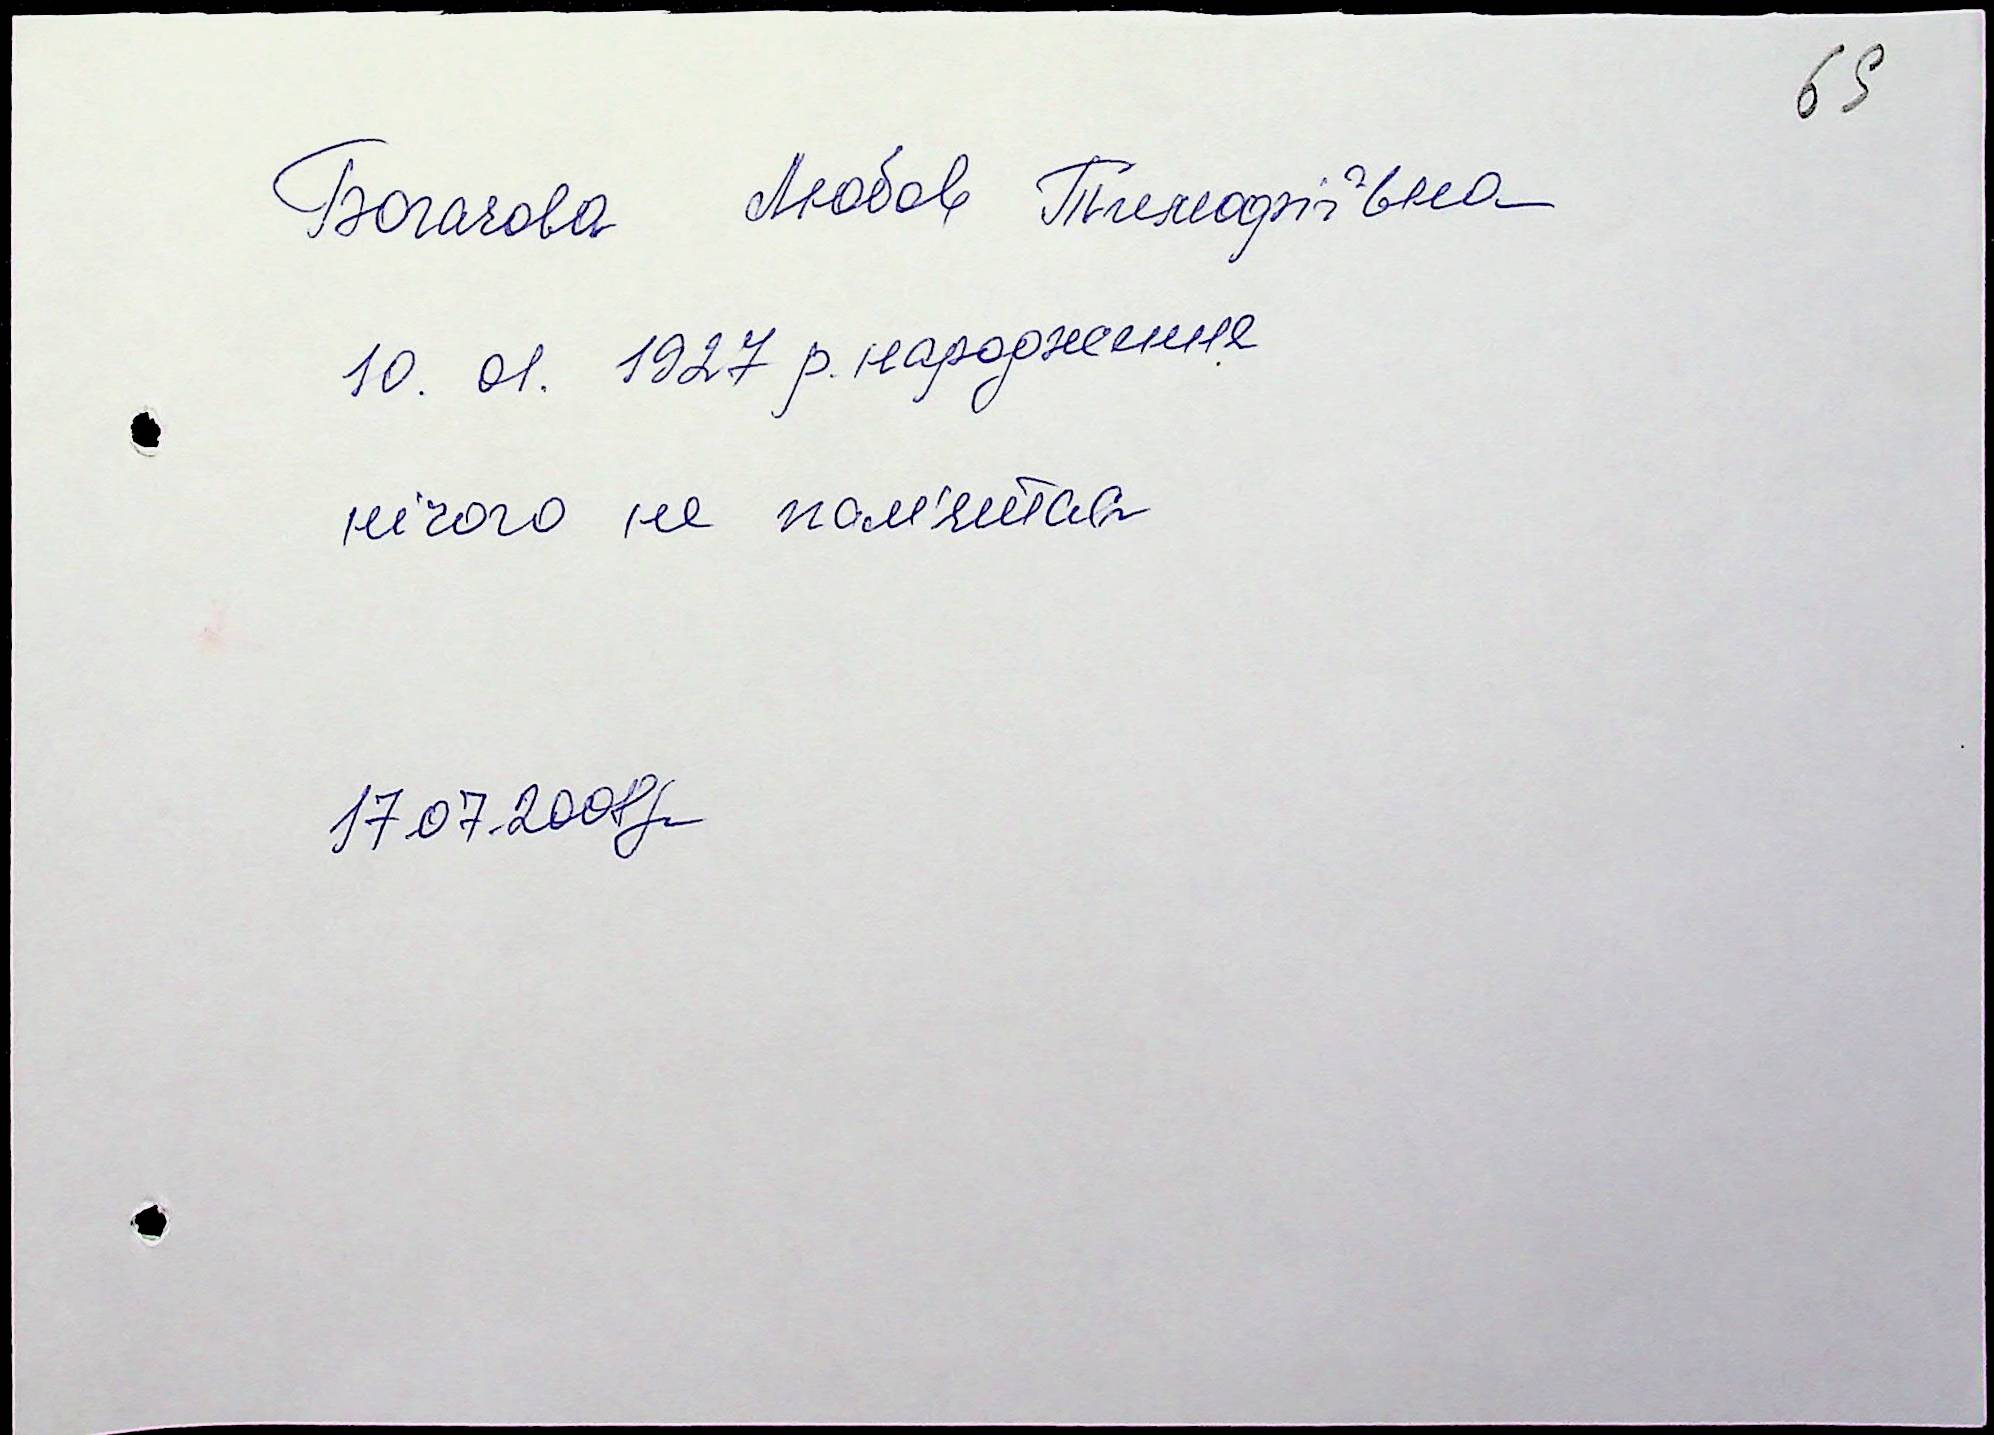 69
Богачова Любов Тимофіївна
10. 01. 1927 р. народження
нічого не пам'ятає
17.07.2008р